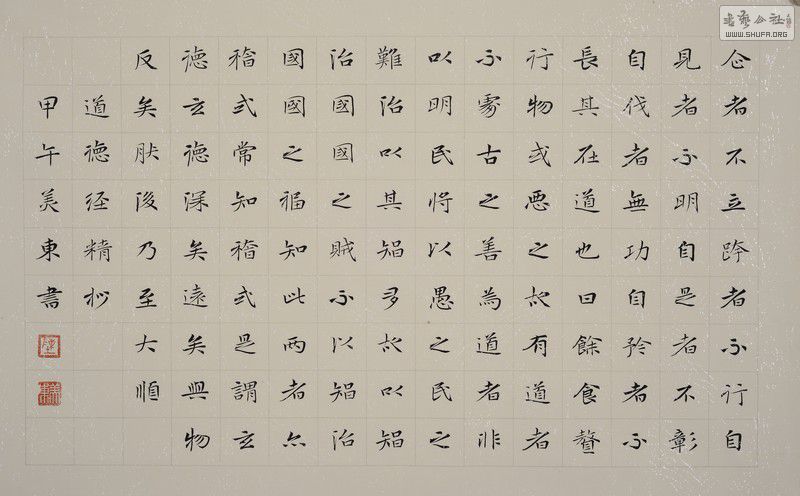 企者不立跨者不行自
見者不明自是者不彰
自伐者無功自矜者不
長其在道也曰餘食贅
行物或惡之故有道者
不處古之善為道者非
以明民將以愚之民之
難治以其智多故以智
治國國之賊不以智治
國國之福知此兩者亦
稽式常知稽式是謂玄
德玄德深矣遠矣與物
反矣然後乃至大順
道德经精抄
甲午美東書
WWW.SHUFA.ORG